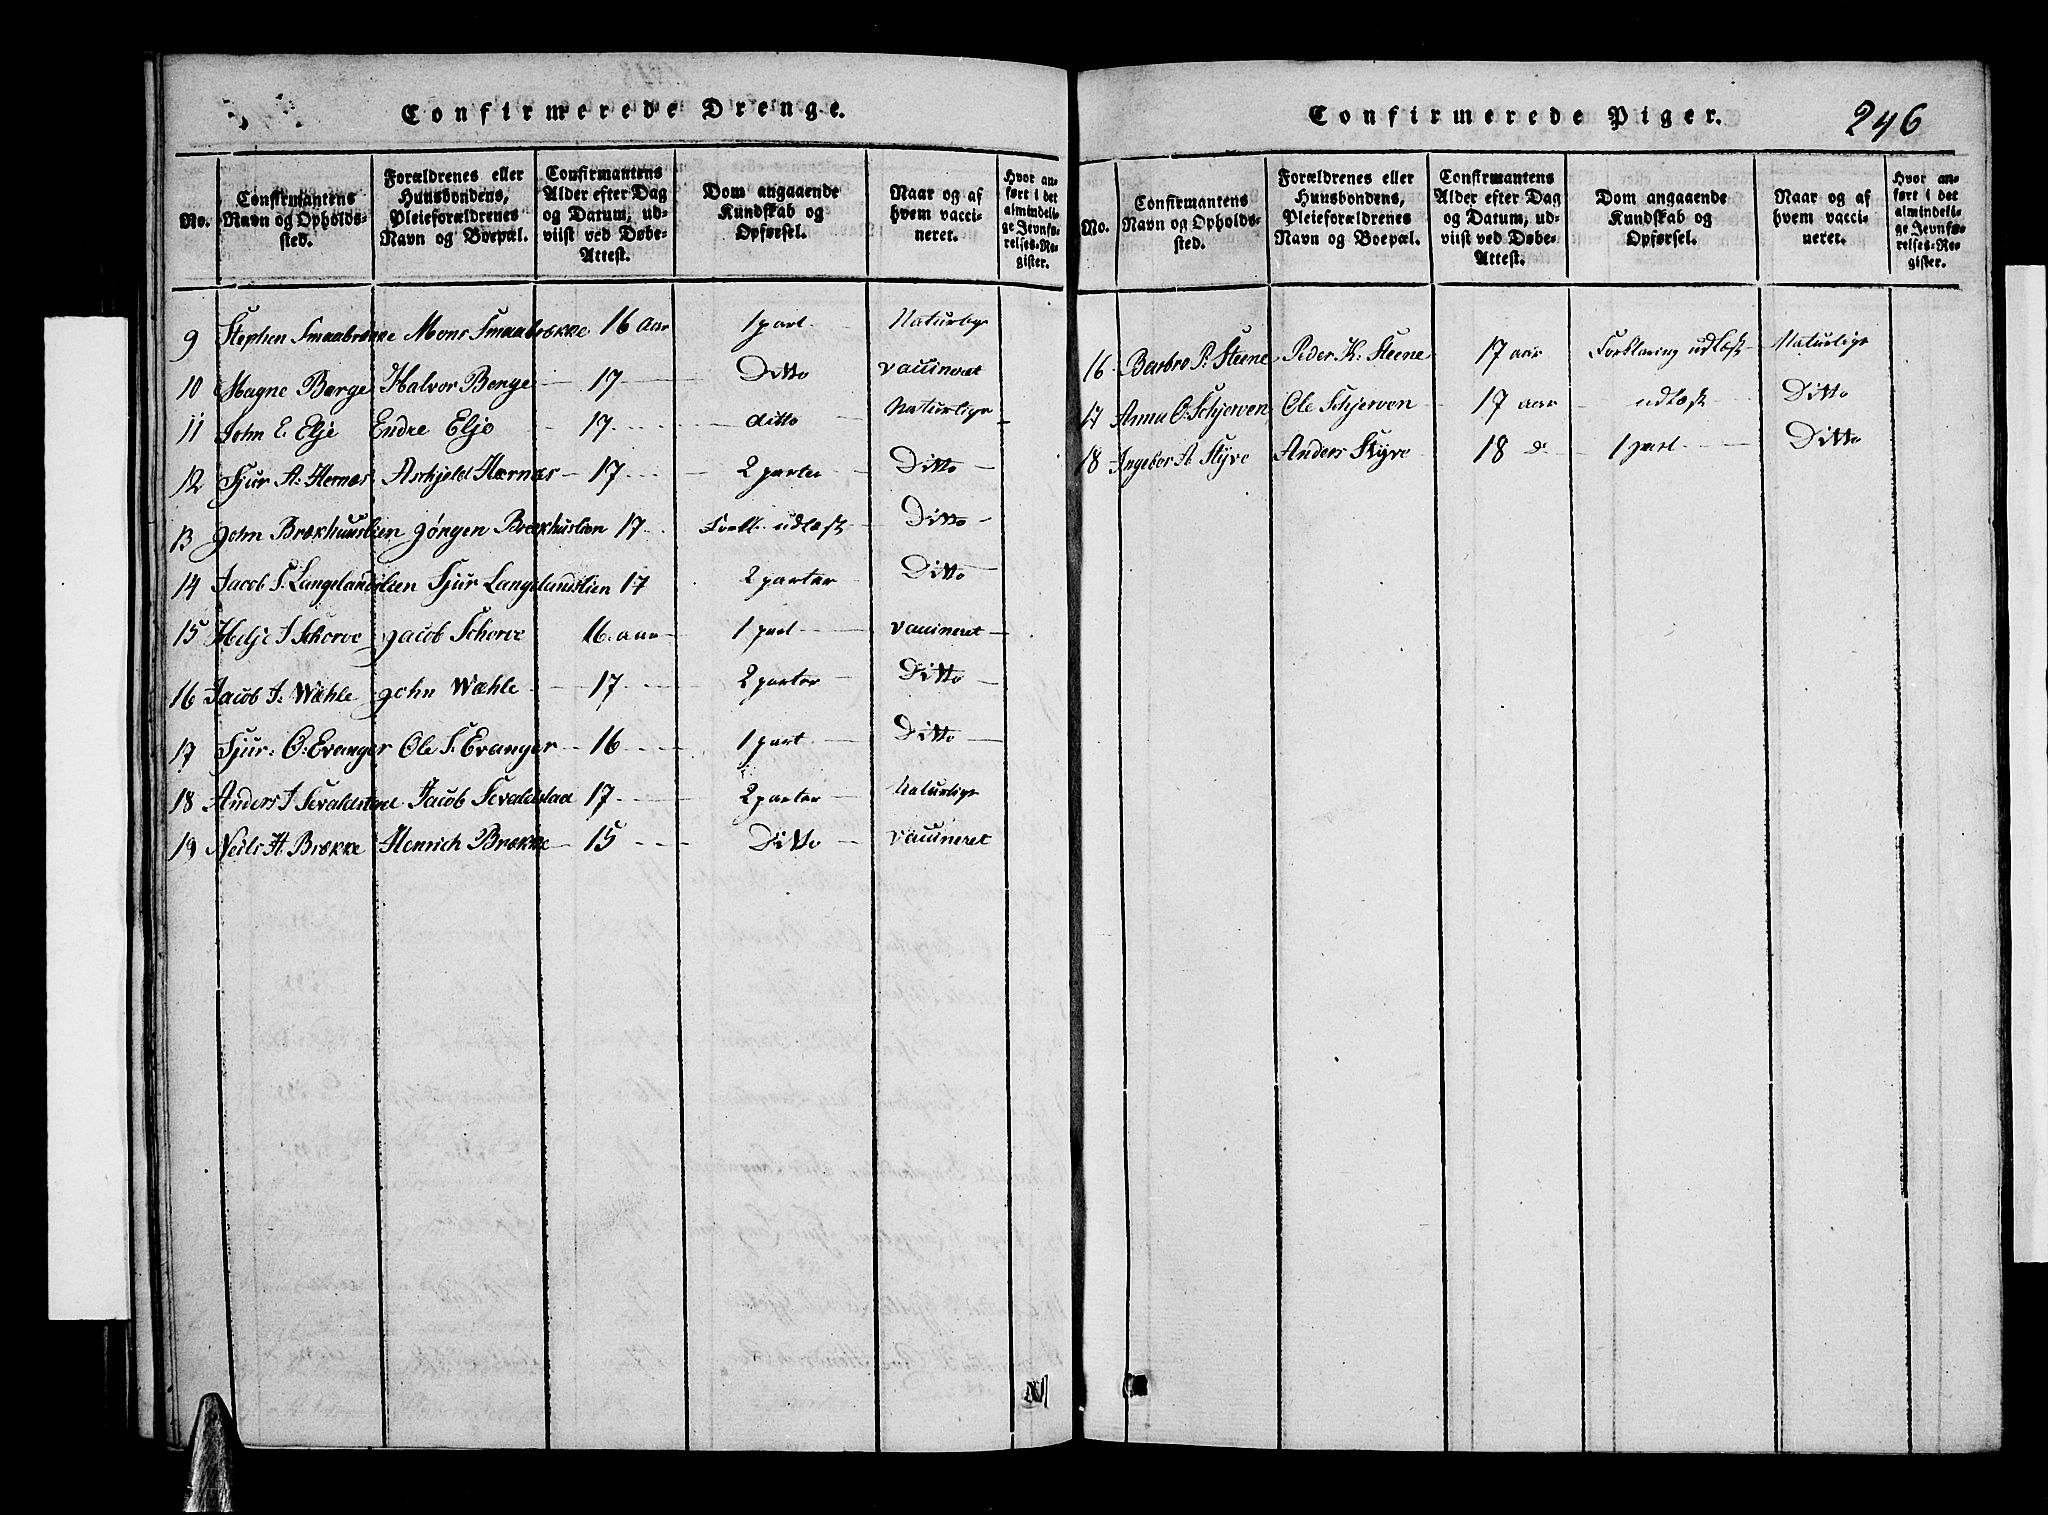 Confirmerede Drenge.
No. | Confirmantens Navn og Opholdssted. | Forældrenes eller Huusbondens, Pleieforældrenes Navn og Boepæl. | Confirmantens Alder efter Dag og Datum, udviist ved Døbe-Attest. | Dom angaaende Kundskab og Opførsel. | Naar og af hvem vaccineret. | Hvor anført i det almindelige Jevnførelses-Register.
9 Stephen Smaabrække Mons Smaabrække 16 aar 1 part Naturlige
10 Magne Berge Halvor Berge 17 Ditto vaccineret
11 John E. Elje Endre Elje 17 ditto Naturlige
12 Sjur A: Hernæs Askjeld Hærnæs 17 2 parter Ditto
13 John Brækhuuslien Jørgen Brækhuslien 17 Forkl. udlæst Ditto
14 Jacob S. Langelandslien Sjur Langelandslien 17 2 parter Ditto
15 Helje J Schorve Jacob Schorve 16 aar 1 part vaccineret
16 Jacob J: Wæhle John Wæhle 17 2 parter Ditto
17 Sjur: O: Evanger Ole S. Evanger 16 1 part Ditto
18 Anders J Sevaldstad Jacob Sevaldstad 17 2 parter Naturlige
19 Neils H. Brække Henrich Brække 15 Ditto vaccineret
Confirmerede Piger. 246
No. | Confirmantens Navn og Opholdssted. | Forældrenes eller Huusbondens, Pleieforældrenes Navn og Boepæl. | Confirmantens Alder efter Dag og Datum, udviist ved Døbe-Attest. | Dom angaaende Kundskab og Opførsel. | Naar og af hvem vaccineret. | Hvor anført i det almindelige Jevnførelses-Register.
16 Barbro P: Steene Peder K. Steene 17 aar Forklaring udlæst Naturlige
17 Anna O: Schjerven Ole Schjerven 17 aar udlæst Ditto
18 Ingebor A Styve Anders Styve 18 d 1 part Ditto